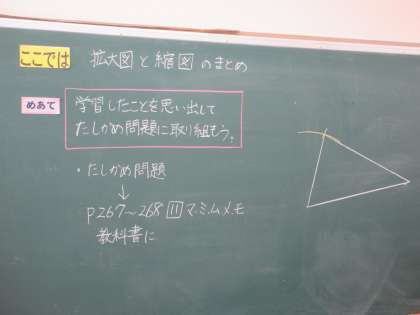 ここでは 拡大図と縮図のまとめ
めあて 学習したことを思い出して
たしかめ問題に取り組もう。
・たしかめ問題
↓
P267～268 11 マ.ミ.ム.メ.モ
教科書に